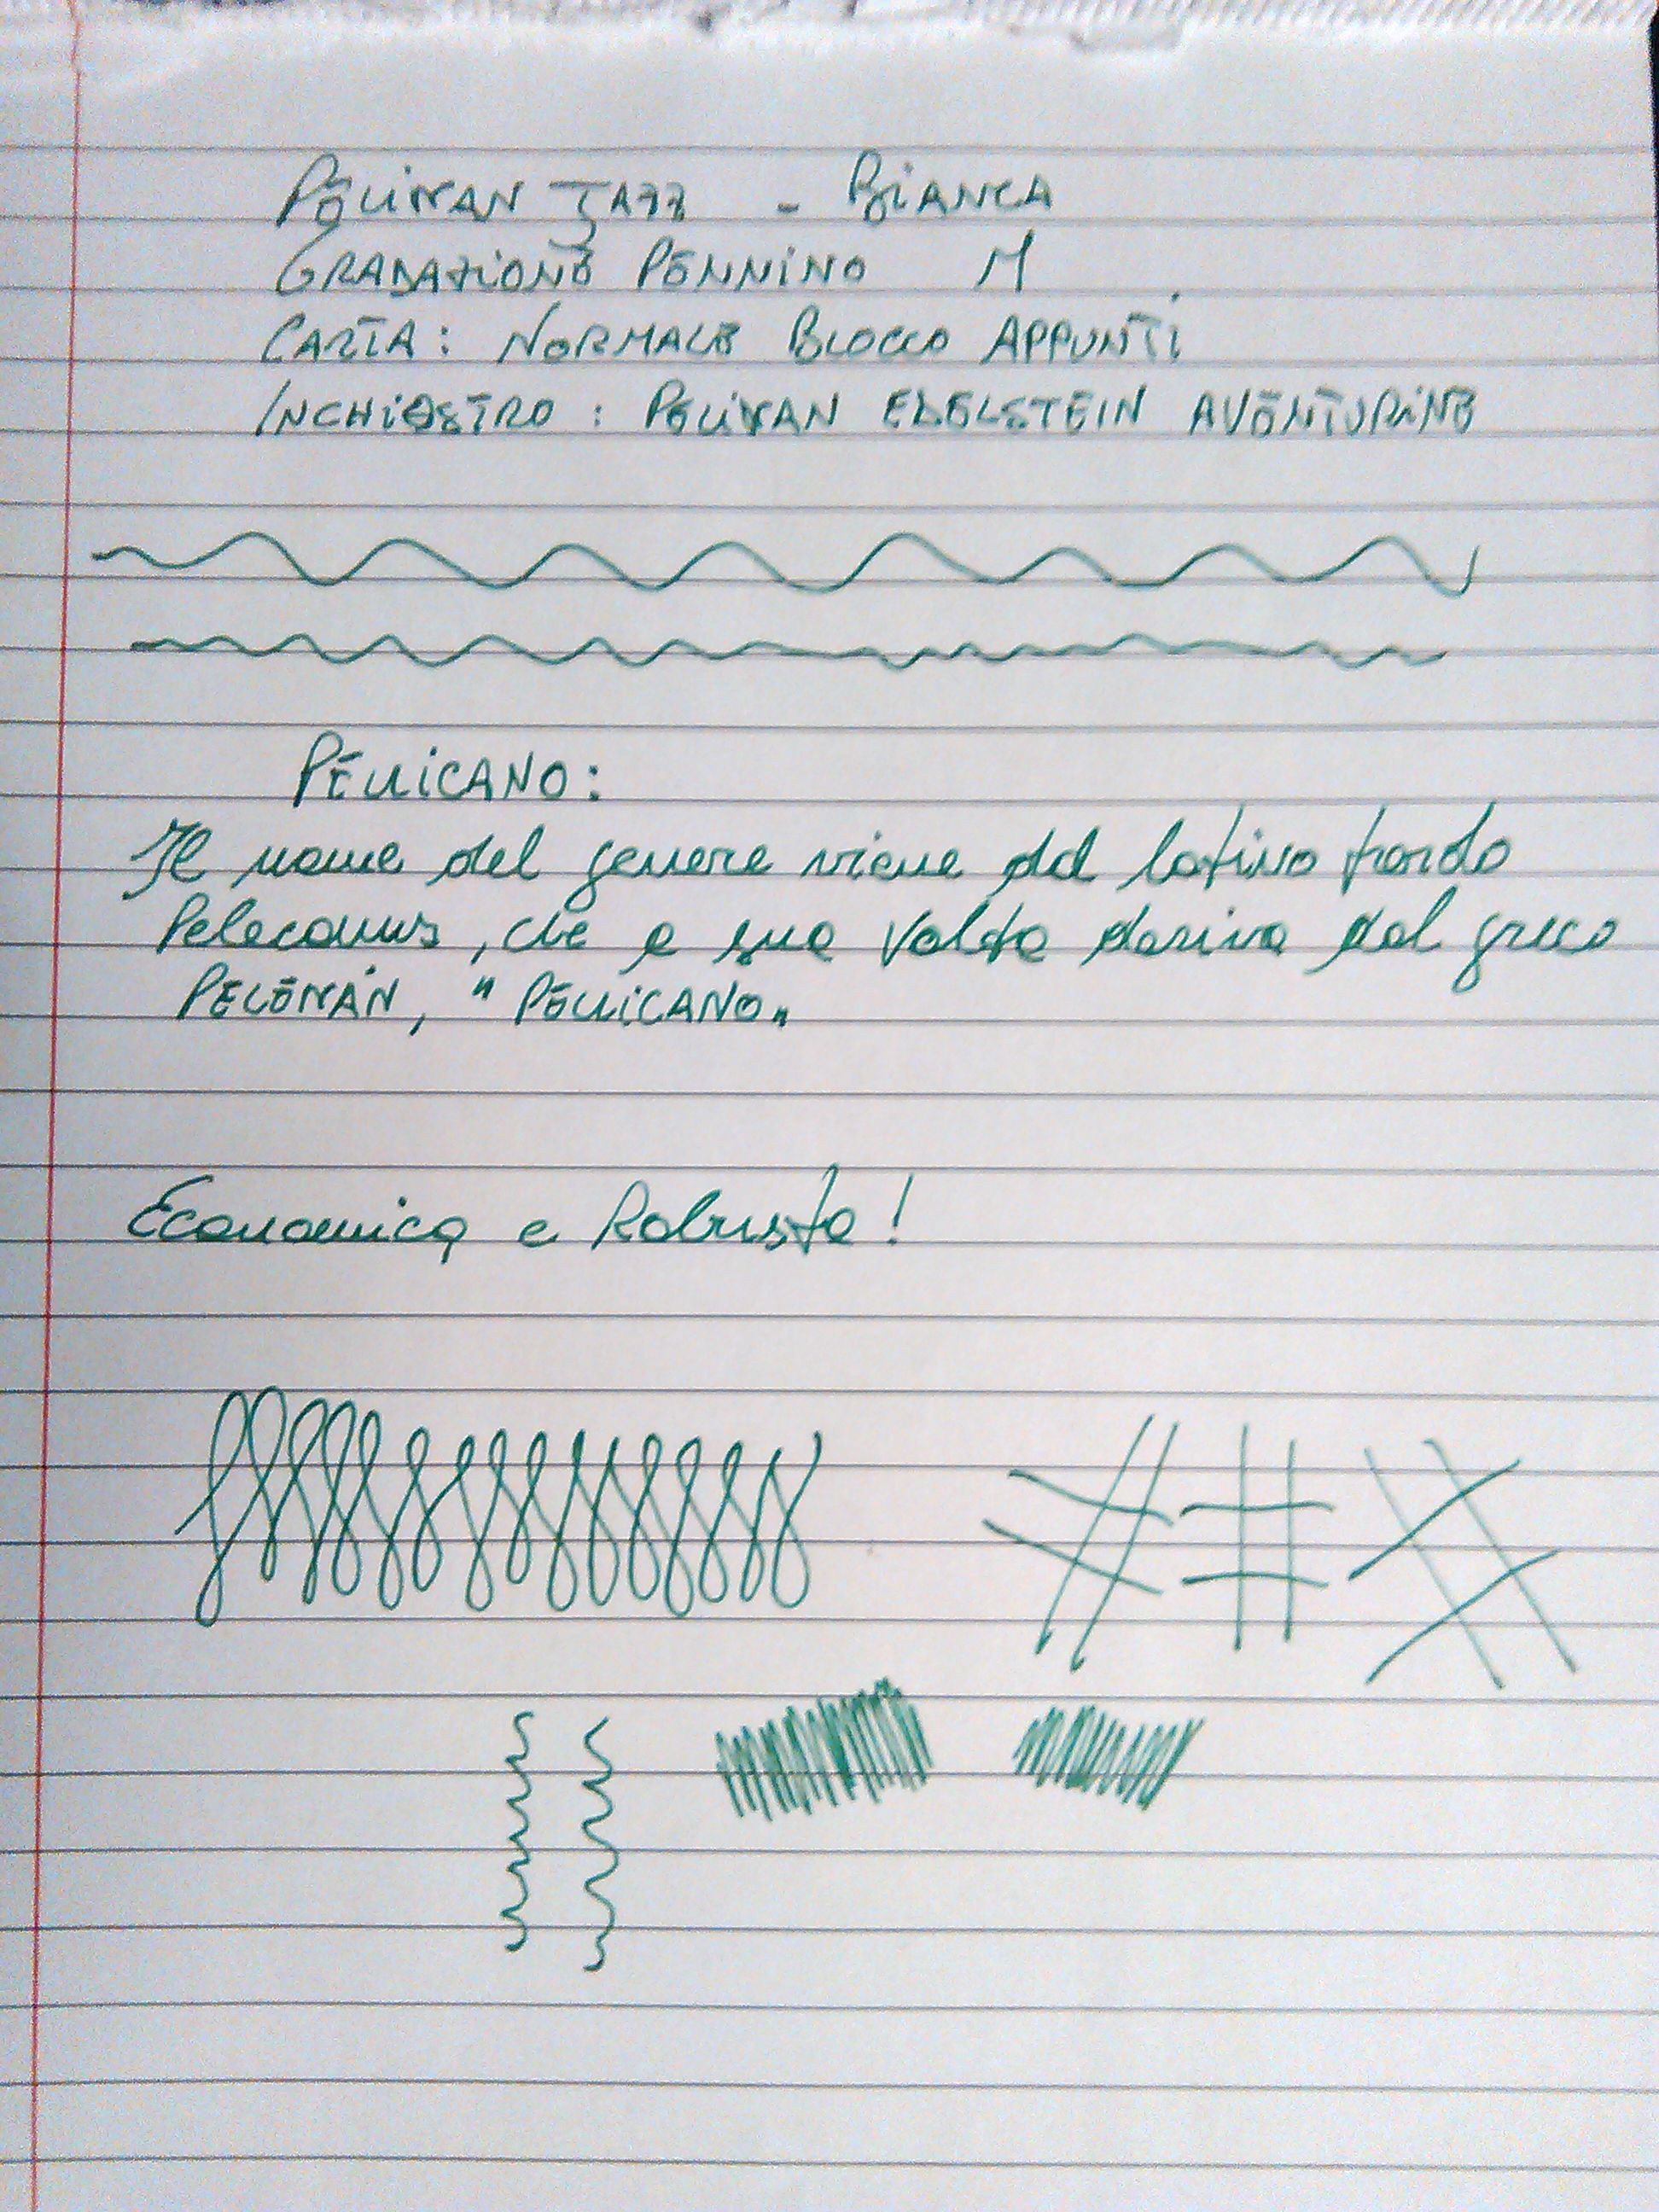 PELIKAN JAZZ - BIANCA
GRADAZIONE PENNINO M
CARTA: NORMALE BLOCCO APPUNTI
INCHIOSTRO: PELIKAN EDELSTEIN AVENTURINE
PELLICANO:
Il nome del genere viene dal latino tardo
Pelecanus, che a sua volta deriva dal greco
PELEKÁN, "PELLICANO"
Economica e Robusta!